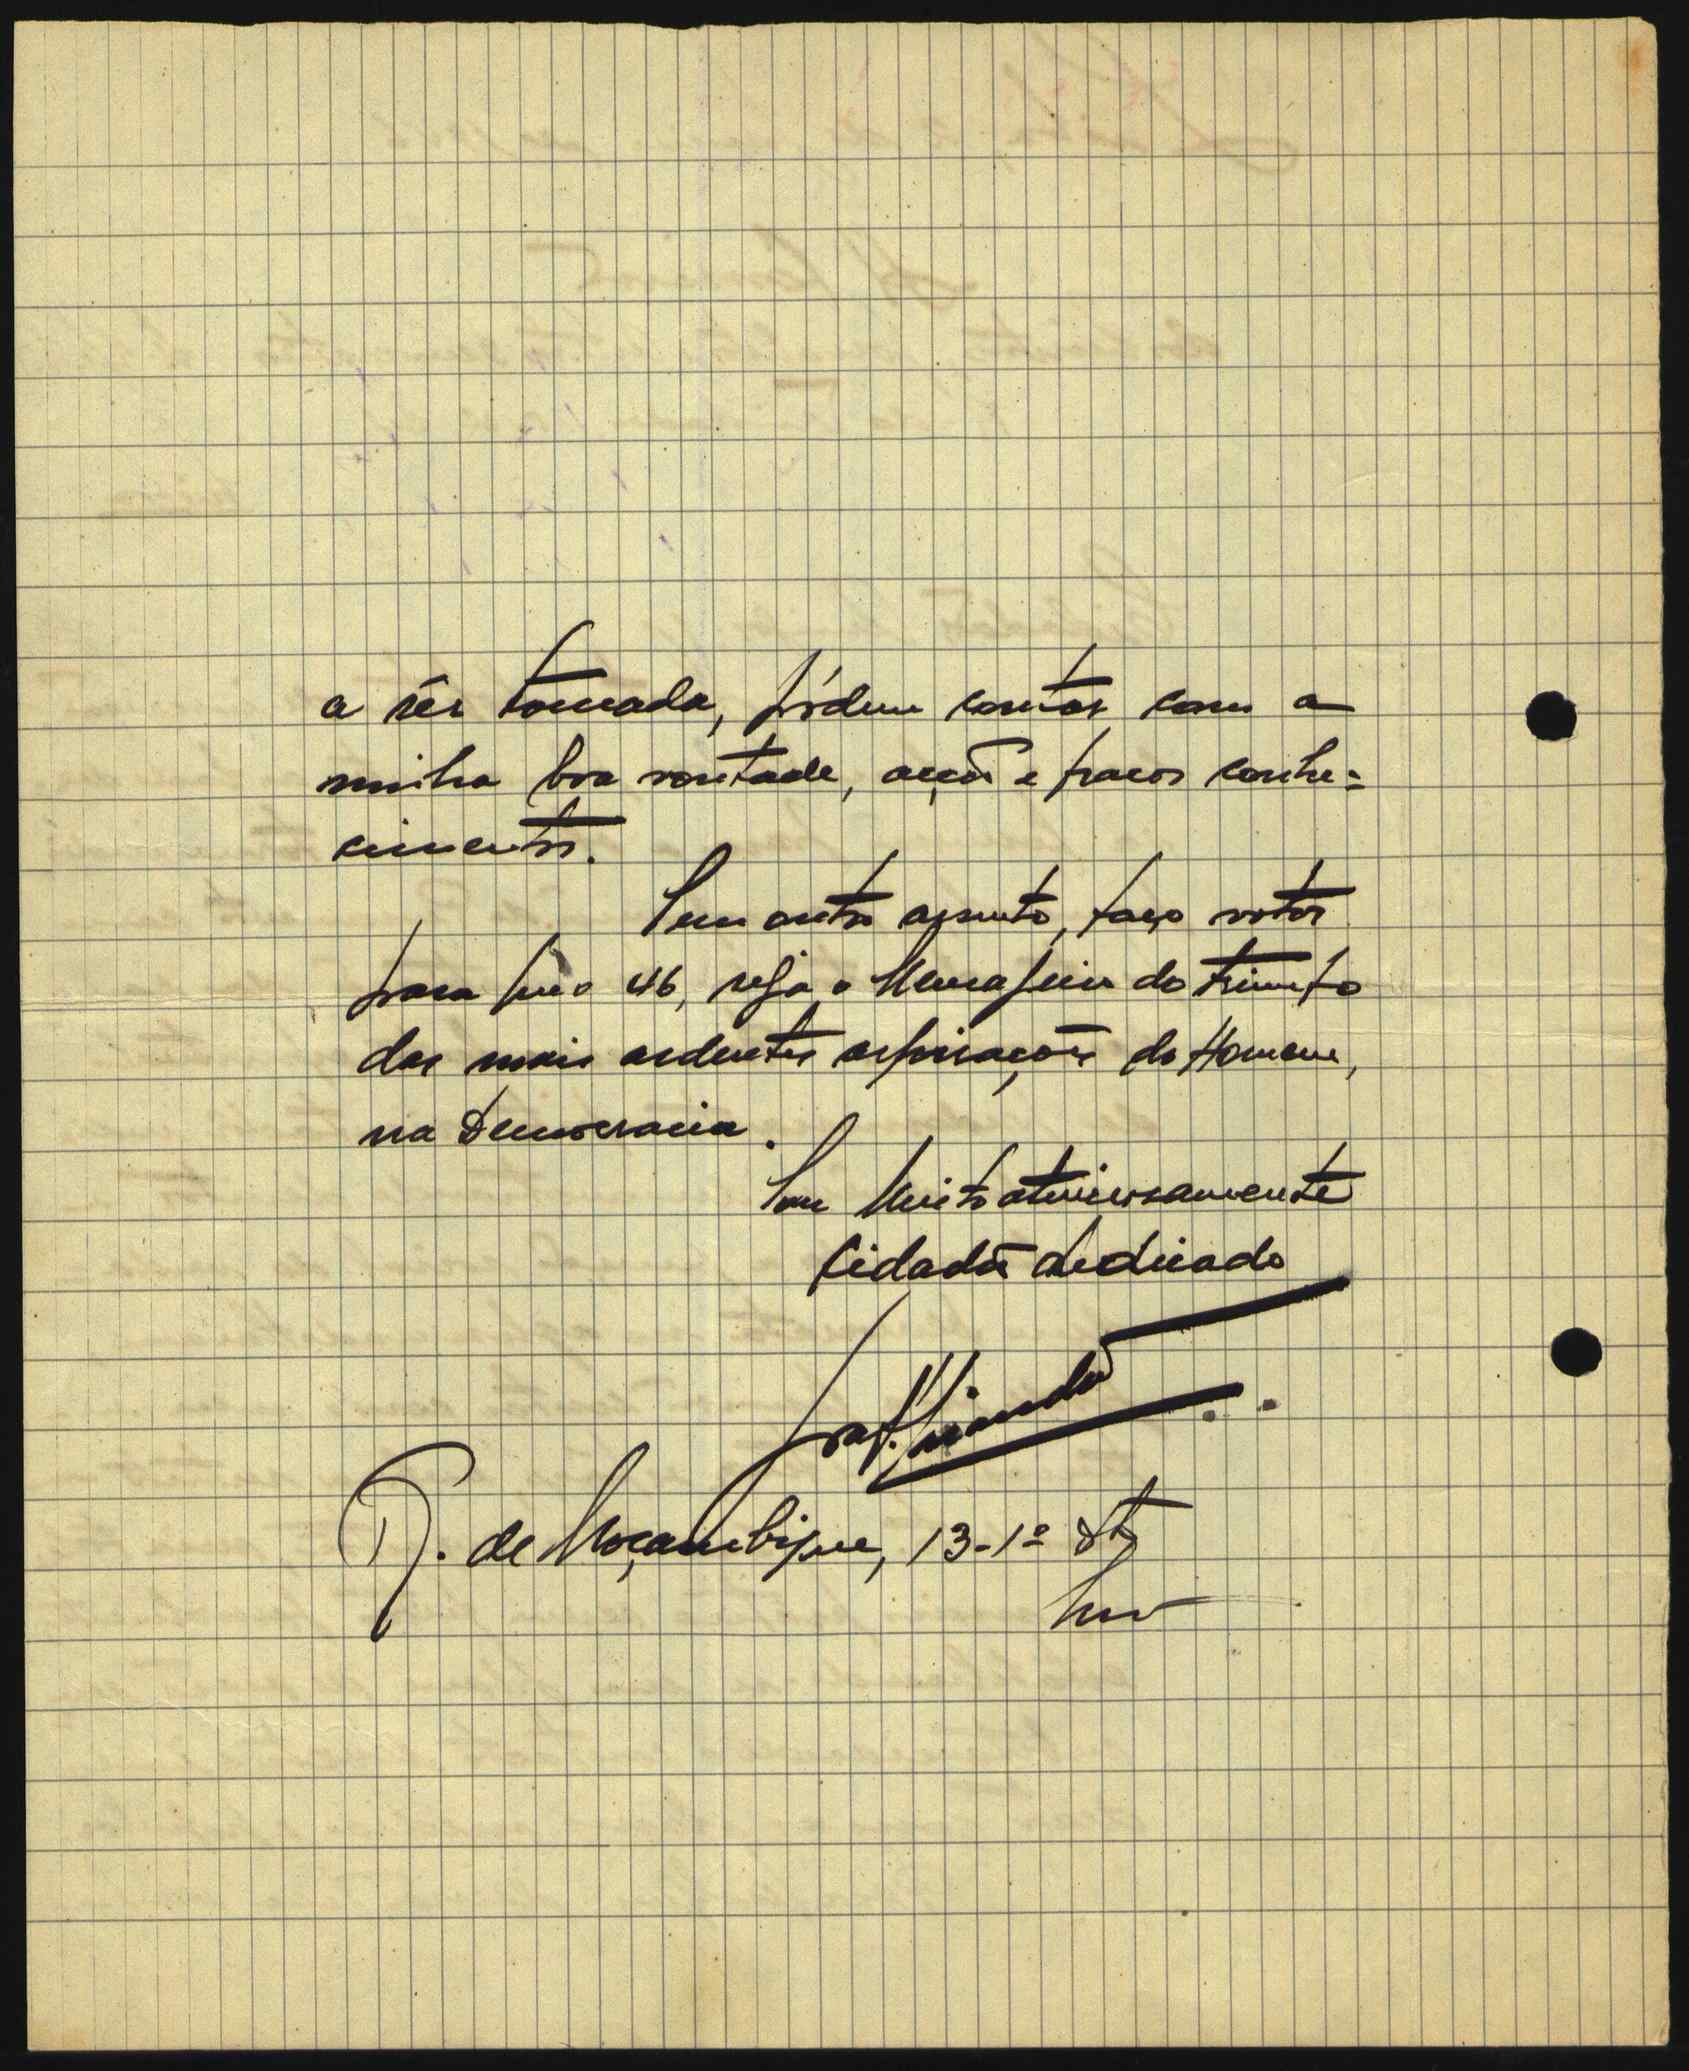 a sêr tomada, pódem contar com a
minha boa vontade, acção e fracos conhe=
cimentos.
Sem outro assunto, faço votos
para que o 46, seja o Mensageiro do triunfo
das mais ardentes aspirações do Homem,
na Democracia.
Sou Muito atenciosamente
Cidadão dedicado
R. de Moçambique, 13-1º